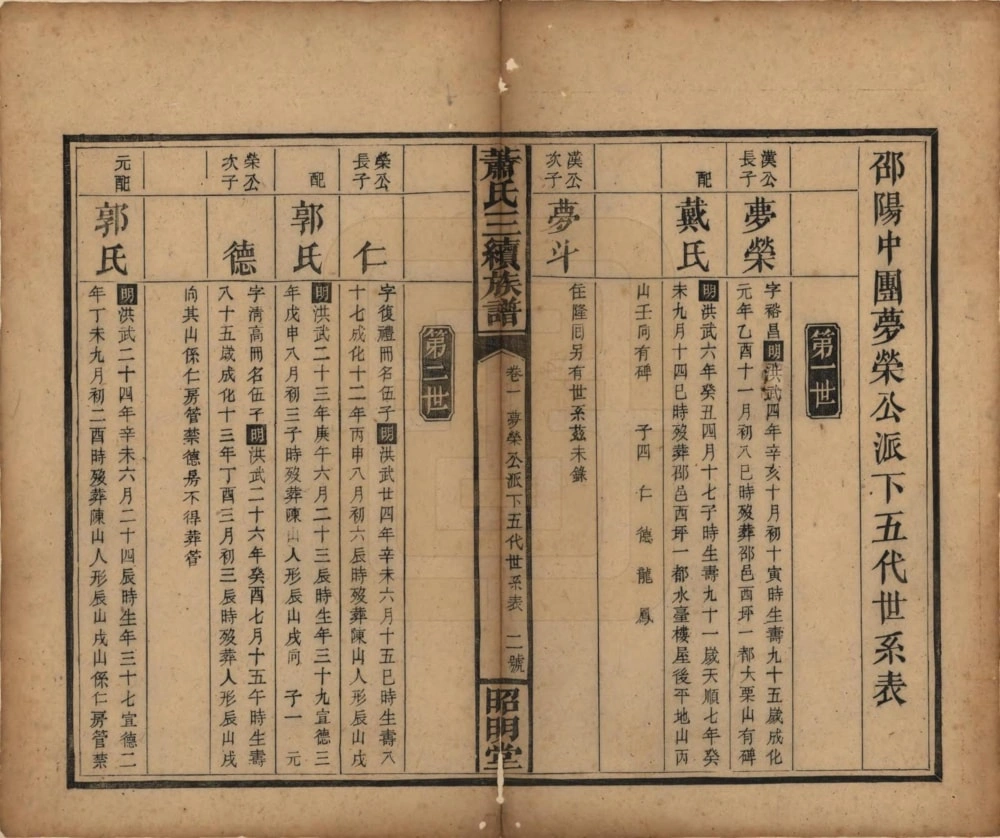 邵陽中團夢榮公派下五代世系表
第一世
漢公長子
夢榮
字裕昌明洪武四年辛亥十月初十寅時生壽九十五歲成化
元年乙酉十一月初八巳時歿葬邵邑西坪一都大栗山有碑
配
戴氏
明洪武六年癸丑四月十七子時生壽九十一歲天順七年癸
未九月十四巳時歿葬邵邑西坪一都水臺樓屋後平地山丙
山壬向有碑 子四 仁 德 龍 鳳
漢公次子
夢斗
住隆回另有世系茲未錄
蕭氏三續族譜
卷一 夢榮公派下五代世系表 二號
昭明堂
第二世
榮公長子
仁
字復禮冊名伍子明洪武廿四年辛未六月十五巳時生壽八
十七成化十二年丙申八月初六辰時歿葬陳山人形辰山戌
配
郭氏
明洪武二十三年庚午六月二十三辰時生年三十九宣德三
年戊申八月初三子時歿葬陳山人形辰山戌向 子一 元
榮公次子
德
字清高冊名伍子明洪武二十六年癸酉七月十五午時生壽
八十五歲成化十三年丁酉三月初三辰時歿葬人形辰山戌
向其山係仁房管禁德房不得葬管
元配
郭氏
明洪武二十四年辛未六月二十四辰時生年三十七宣德二
年丁未九月初二酉時歿葬陳山人形辰山戌山係仁房管禁